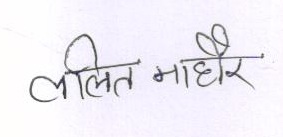 ललित माहौर